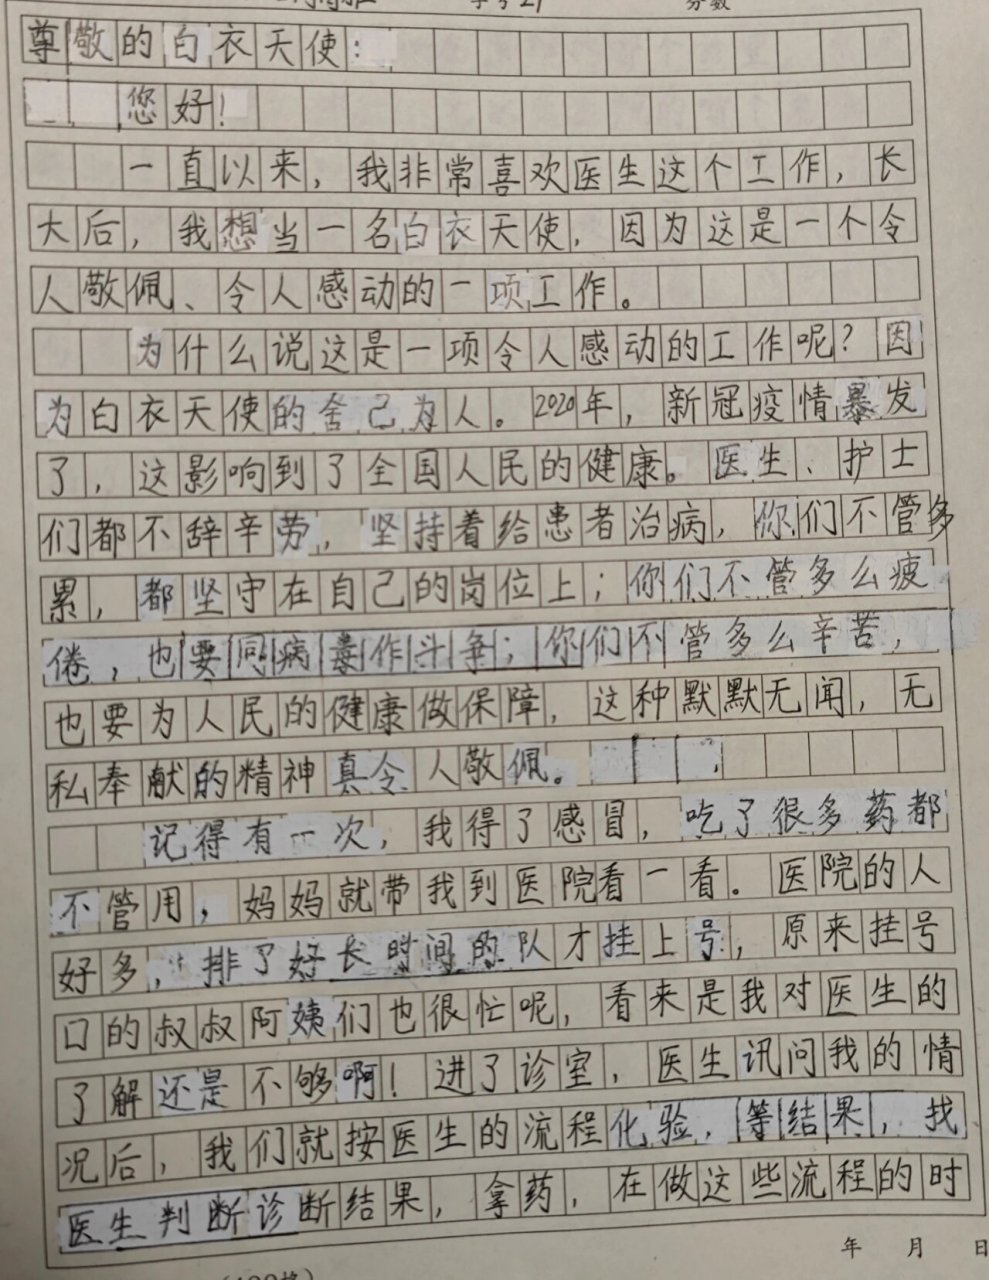 尊敬的白衣天使：
您好！
一直以来，我非常喜欢医生这个工作，长
大后，我想当一名白衣天使，因为这是一个令
人敬佩、令人感动的一项工作。
为什么说这是一项令人感动的工作呢？因
为白衣天使的舍己为人。2020年，新冠疫情暴发
了，这影响到了全国人民的健康。医生、护士
们都不辞辛劳，坚持着给患者治病，你们不管多
累，都坚守在自己的岗位上；你们不管多么疲
倦，也要同病毒作斗争；你们不管多么辛苦，
也要为人民的健康做保障，这种默默无闻，无
私奉献的精神真令人敬佩。
记得有一次，我得了感冒，吃了很多药都
不管用，妈妈就带我到医院看一看。医院的人
好多，排了好长时间的队才挂上号，原来挂号
口的叔叔阿姨们也很忙呢，看来是我对医生的
了解还是不够啊！进了诊室，医生讯问我的情
况后，我们就按医生的流程化验，等结果，找
医生判断诊断结果，拿药，在做这些流程的时
年 月 日